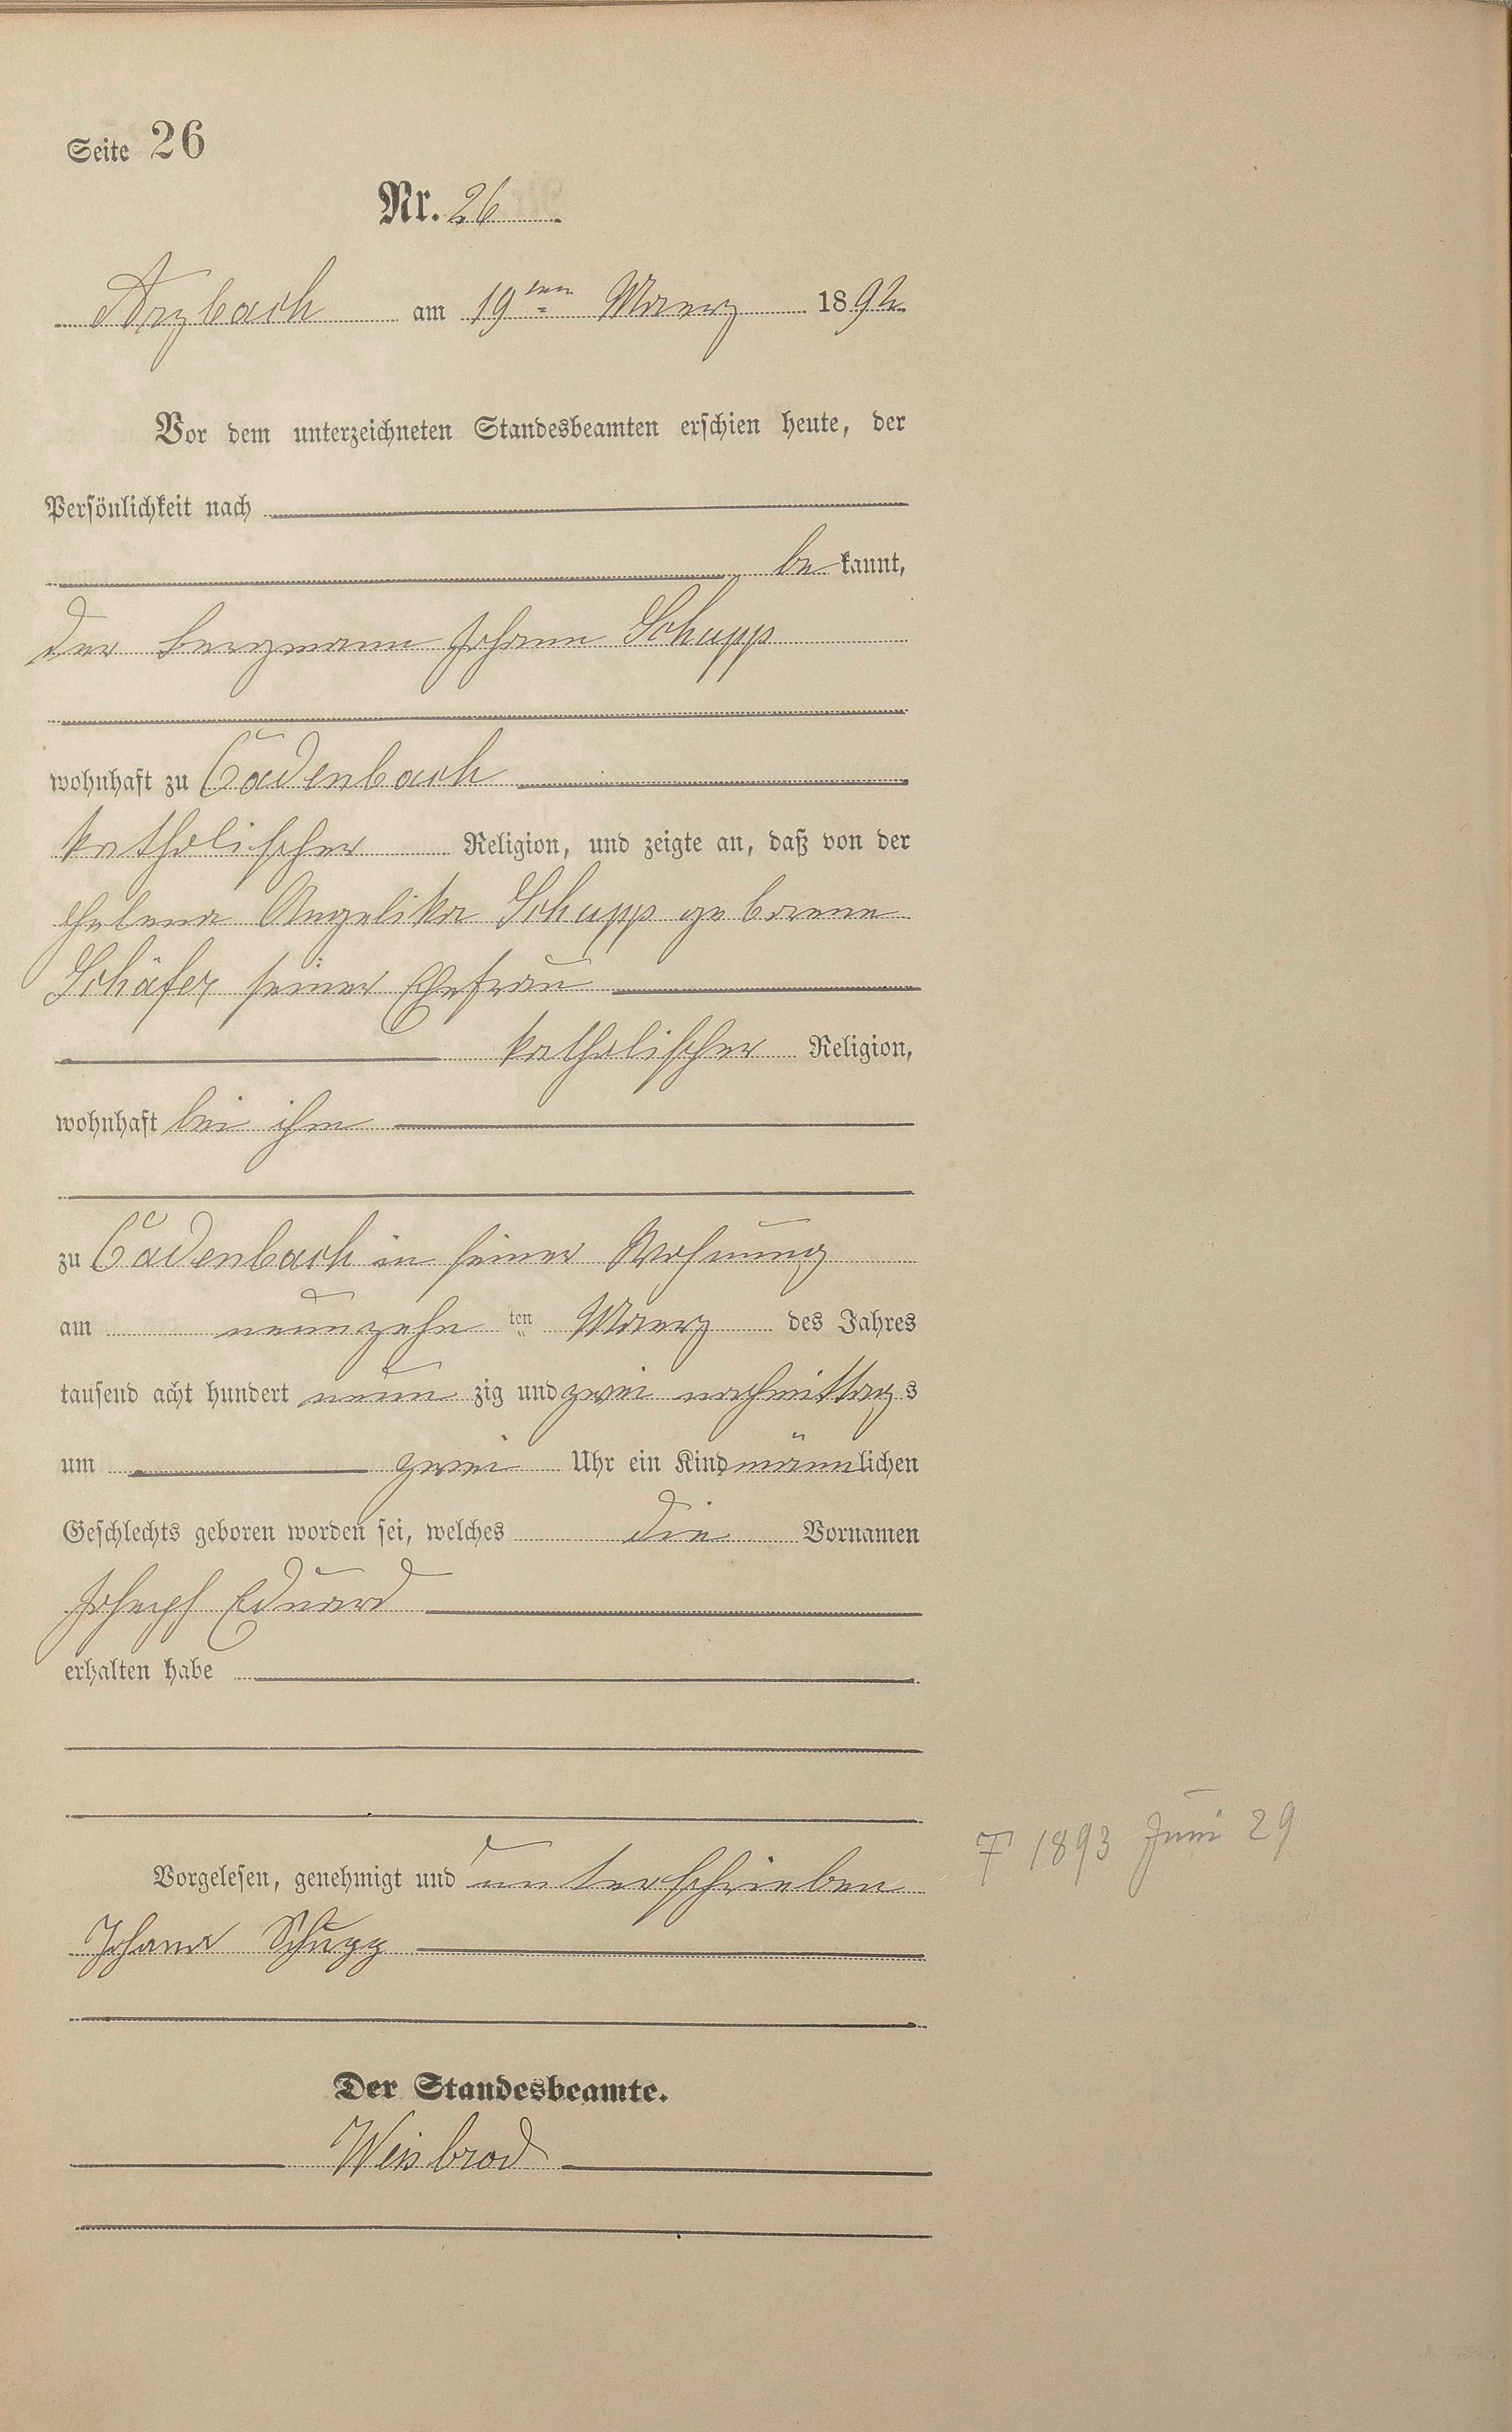 Seite 26
Nr. 26
Arzbach am 19ten Maerz 1892
Vor dem unterzeichneten Standesbeamten erschien heute, der
Persönlichkeit nach
be kannt,
der Bergmann Johann Schupp
wohnhaft zu Cadenbach
katholischer Religion, und zeigte an, daß von der
Helena Angelika Schupp geborene
Schäfer seiner Ehefrau
katholischer Religion,
wohnhaft bei ihm
zu Cadenbach in seiner Wohnung
am neunzehn ten Maerz des Jahres
tausend acht hundert neun zig und zwei nachmittags
um zwei Uhr ein Kind männlichen
Geschlechts geboren worden sei, welches die Vornamen
Joseph Eduard
erhalten habe
† 1893 Juni 29
Vorgelesen, genehmigt und unterschrieben
Johann Schupp
Der Standesbeamte.
Weisbrod